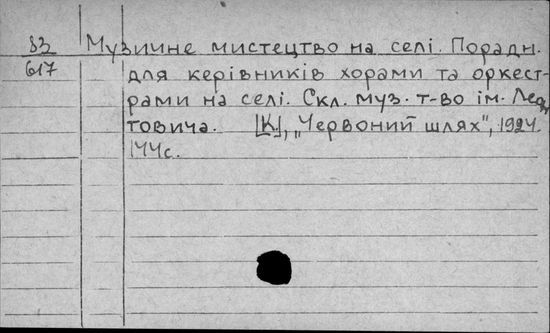 83 Музичне мистецтво на селі. Порадн.
617 для керівників хорами та оркест-
рами на селі. Скл. муз. т-во ім. Леон-
товича. [К.], „Червоний шлях", 1924.
144с.